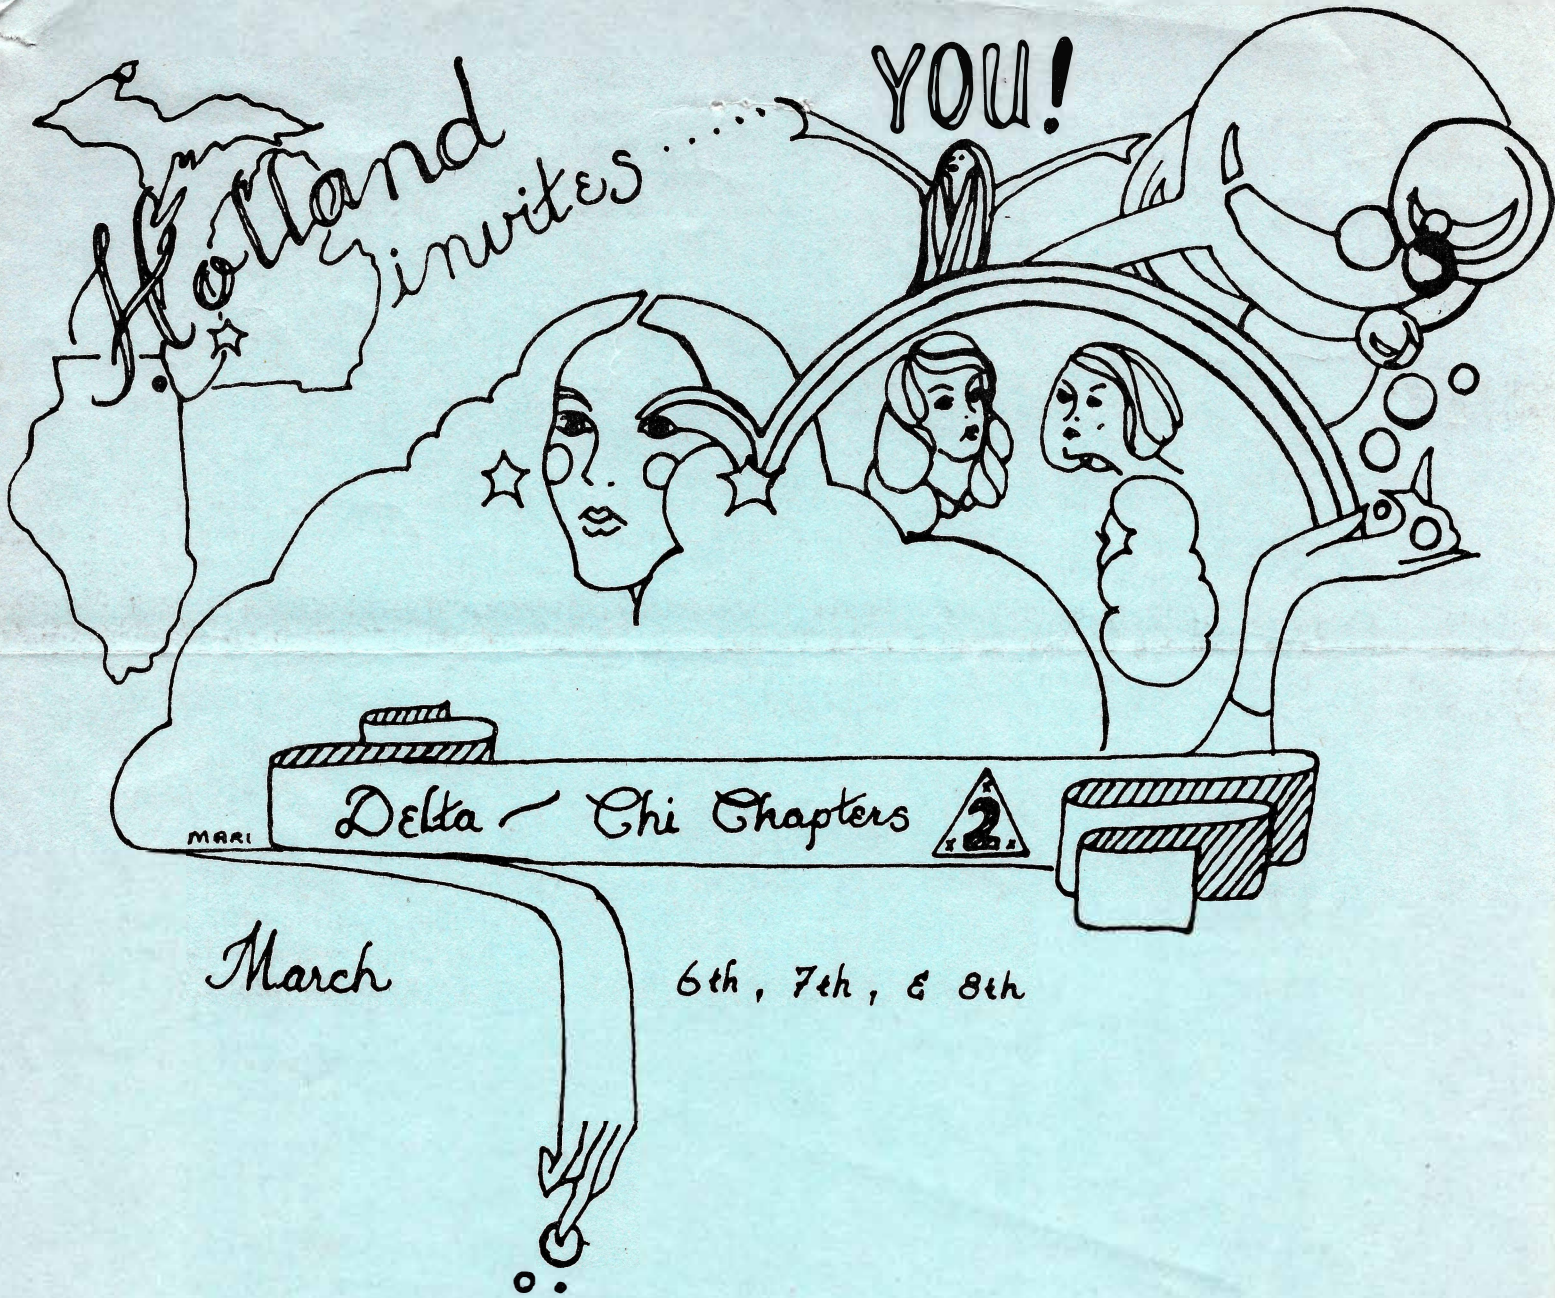 Holland
invites......
YOU!
Delta — Chi Chapters 2
MARI
March 6th, 7th, & 8th